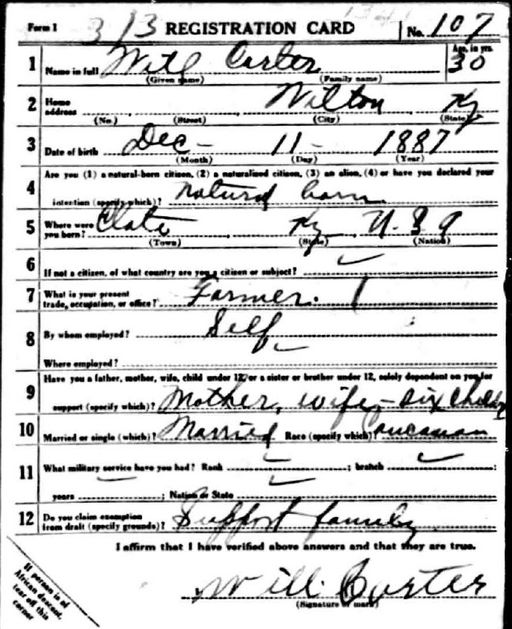 Form 1 313 REGISTRATION CARD No. 107
1 Name in full Will Carter Age, in yrs. 30
(Given name) (Family name)
2 Home address Wilton Ky
(No.) (Street) (City) (State)
3 Date of birth Dec - 11 - 1887
(Month) (Day) (Year)
4 Are you (1) a natural-born citizen, (2) a naturalized citizen, (3) an alien, (4) or have you declared your
intention (specify which)? natural born
5 Where were you born? Clate Ky U.S A
(Town) (State) (Nation)
6 If not a citizen, of what country are you a citizen or subject?
7 What is your present trade, occupation, or office? Farmer.
8 By whom employed? Self
Where employed?
9 Have you a father, mother, wife, child under 12, or a sister or brother under 12, solely dependent on you for
support (specify which)? Mother, wife, - six
10 Married or single (which)? Married Race (specify which)? Caucasian
11 What military service have you had? Rank ; branch ;
years ; Nation or State
12 Do you claim exemption from draft (specify grounds)? Support family
I affirm that I have verified above answers and that they are true.
Will. Carter
(Signature or mark)
If person is of
African descent,
tear off this
corner